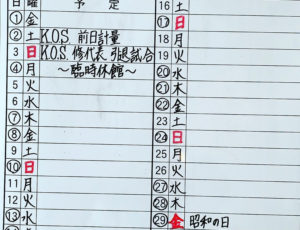 日 曜 予 定
1 金
② 土 K.O.S 前日計量
3 日 K.O.S. 修代表 引退試合
④ 月 〜臨時休館〜
5 火
6 水
⑦ 木
⑧ 金
9 土
⑩ 日
11 月
12 火
⑬ 水
16 土
⑰ 日
18 月
19 火
⑳ 水
㉑ 木
㉒ 金
23 土
㉔ 日
25 月
26 火
㉗ 水
㉘ 木
㉙ 金 昭和の日